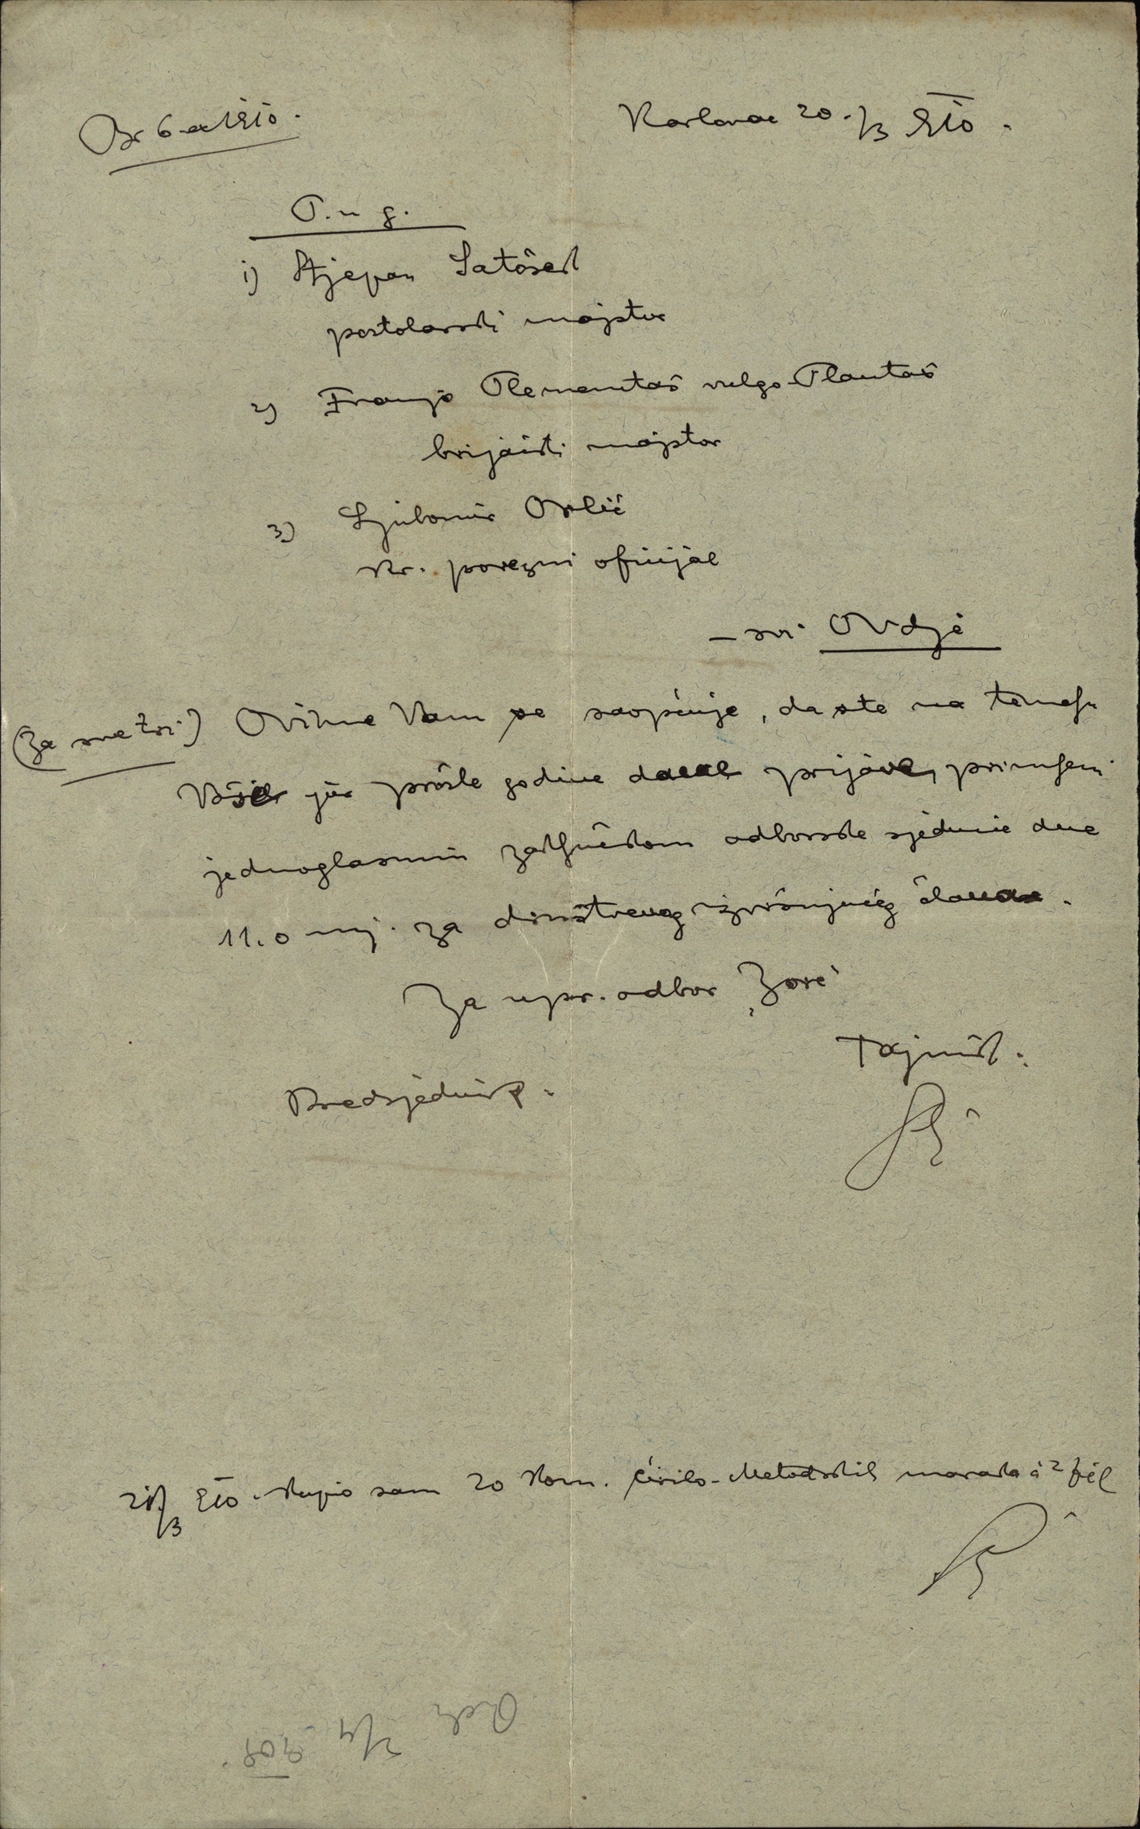 Br 6 ex 1910.
Karlovac 20./3 910.
P. n g.
1) Stjepan Satošek
postolarski majstor
2) Franjo Plementaš vulgo Plantaš
brijački majstor
3) Ljubomir Orlić
kr. porezni oficijal
– svi Ovdje
(Za sve tri.) Ovime Vam se saopćuje, da ste na temelju
Vaše još prošle godine prijave, primljeni
jednoglasnim zaključkom odborske sjednice dne
11. o mj. za društvenog izvršujućeg člana.
Za upr. odbor „Zore"
Tajnik:
Predsjednik:
21./3 910. Kupio sam 20 kom. Ćirilo-Metodskih maraka à 2 fil